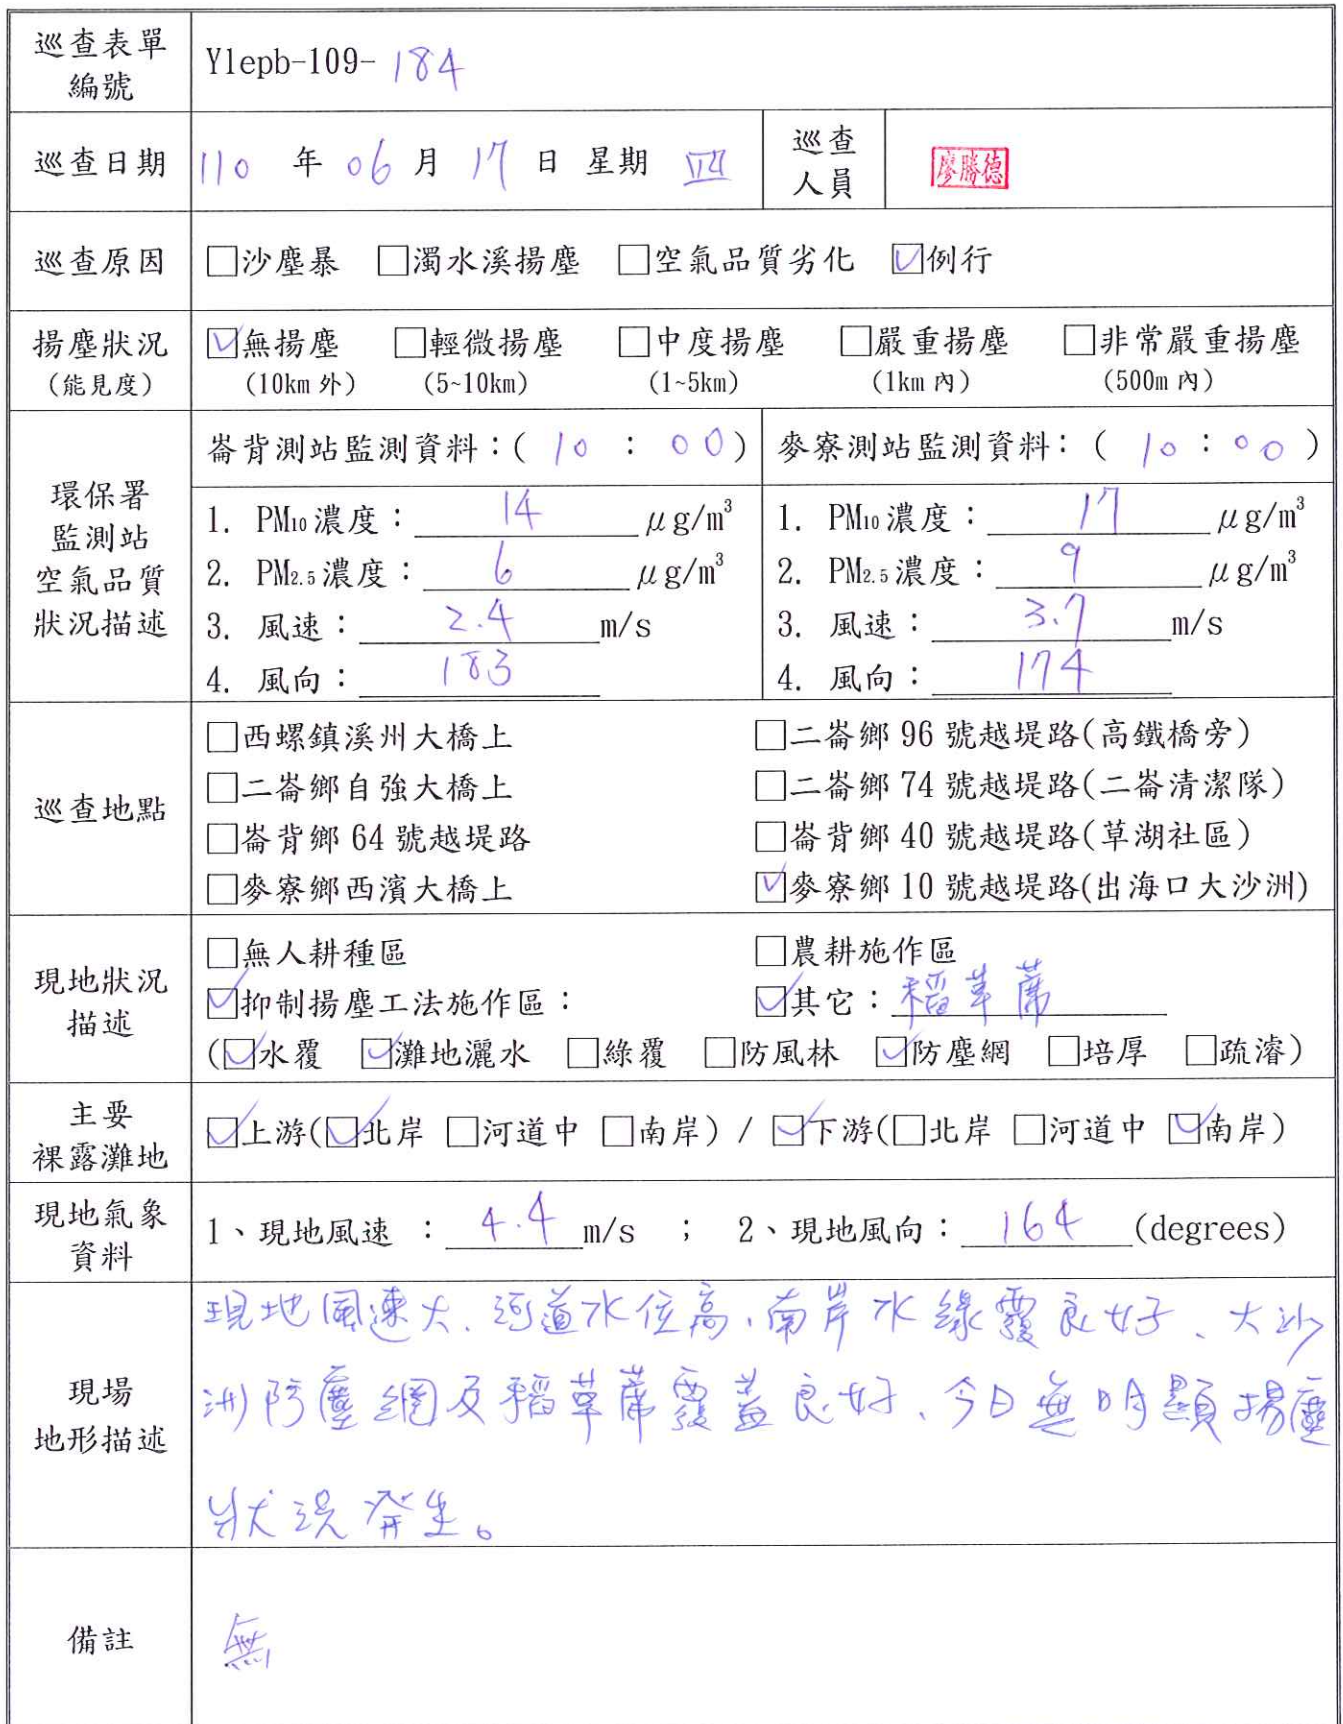 巡查表單
編號
Ylepb-109-184
巡查日期
110 年 06 月 17 日 星期 四
巡查
人員
廖勝德
巡查原因
□沙塵暴 □濁水溪揚塵 □空氣品質劣化 ☑例行
揚塵狀況
(能見度)
☑無揚塵 □輕微揚塵 □中度揚塵 □嚴重揚塵 □非常嚴重揚塵
(10km 外) (5~10km) (1~5km) (1km 內) (500m 內)
環保署
監測站
空氣品質
狀況描述
崙背測站監測資料：( 10 : 00 )
1. PM10 濃度：14 μg/m³
2. PM2.5 濃度：6 μg/m³
3. 風速：2.4 m/s
4. 風向：183
麥寮測站監測資料：( 10 : 00 )
1. PM10 濃度：17 μg/m³
2. PM2.5 濃度：9 μg/m³
3. 風速：3.7 m/s
4. 風向：174
巡查地點
□西螺鎮溪州大橋上 □二崙鄉 96 號越堤路(高鐵橋旁)
□二崙鄉自強大橋上 □二崙鄉 74 號越堤路(二崙清潔隊)
□崙背鄉 64 號越堤路 □崙背鄉 40 號越堤路(草湖社區)
□麥寮鄉西濱大橋上 ☑麥寮鄉 10 號越堤路(出海口大沙洲)
現地狀況
描述
□無人耕種區 □農耕施作區
☑抑制揚塵工法施作區： ☑其它：稻草蓆
(☑水覆 ☑灘地灑水 □綠覆 □防風林 ☑防塵網 □培厚 □疏濬)
主要
裸露灘地
☑上游(☑北岸 □河道中 □南岸) / ☑下游(□北岸 □河道中 ☑南岸)
現地氣象
資料
1、現地風速 ：4.4 m/s ； 2、現地風向：164 (degrees)
現場
地形描述
現地風速大、河道水位高、南岸水綠覆良好、大沙
洲防塵網及稻草蓆覆蓋良好、今日無明顯揚塵
狀況發生。
備註
無